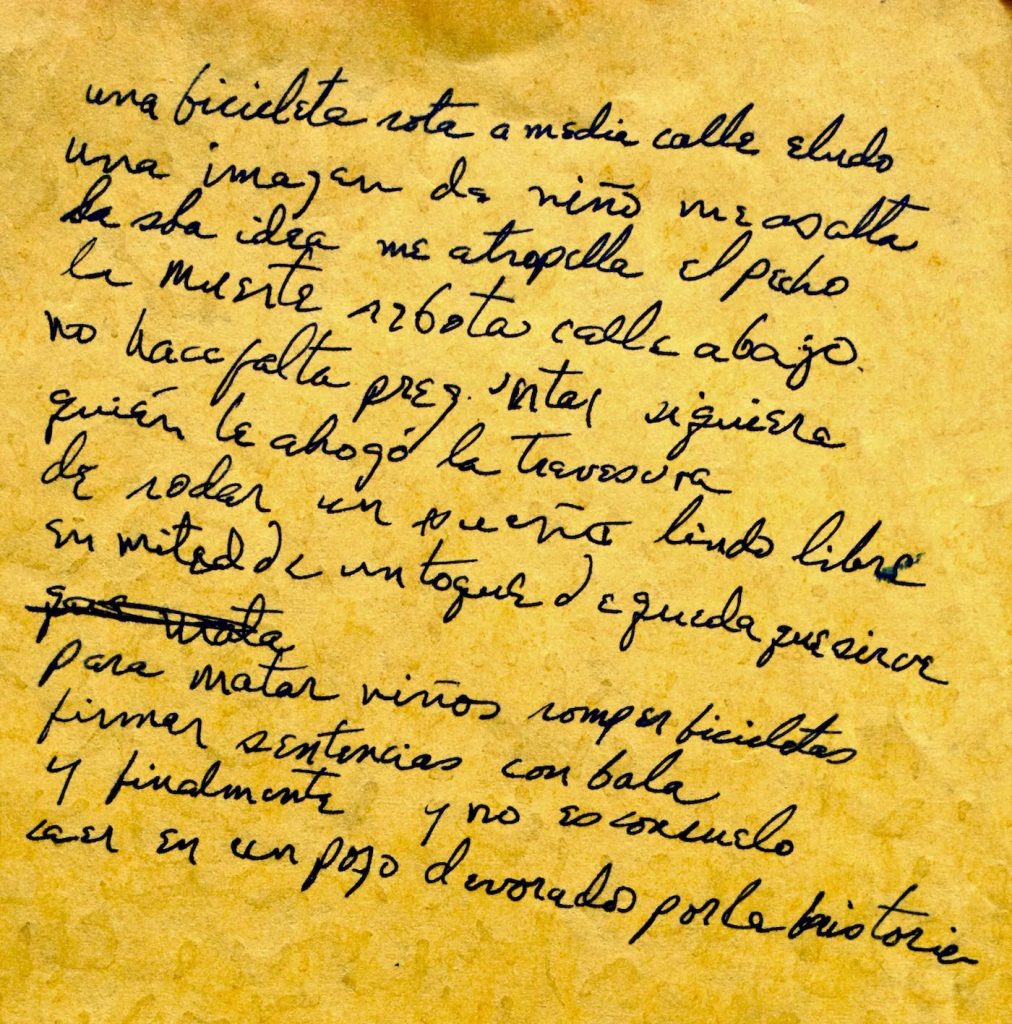 una bicicleta rota a media calle eludo
una imagen de niño me asalta
la sola idea me atropella el pecho
la muerte rebota calle abajo.
no hace falta preguntar siquiera
quién le ahogó la travesura
de rodar un sueño lindo libre
en mitad de un toque de queda que sirve
que mata
para matar niños romper bicicletas
firmar sentencias con bala
y finalmente y no es consuelo
caer en un pozo devorados por la historia